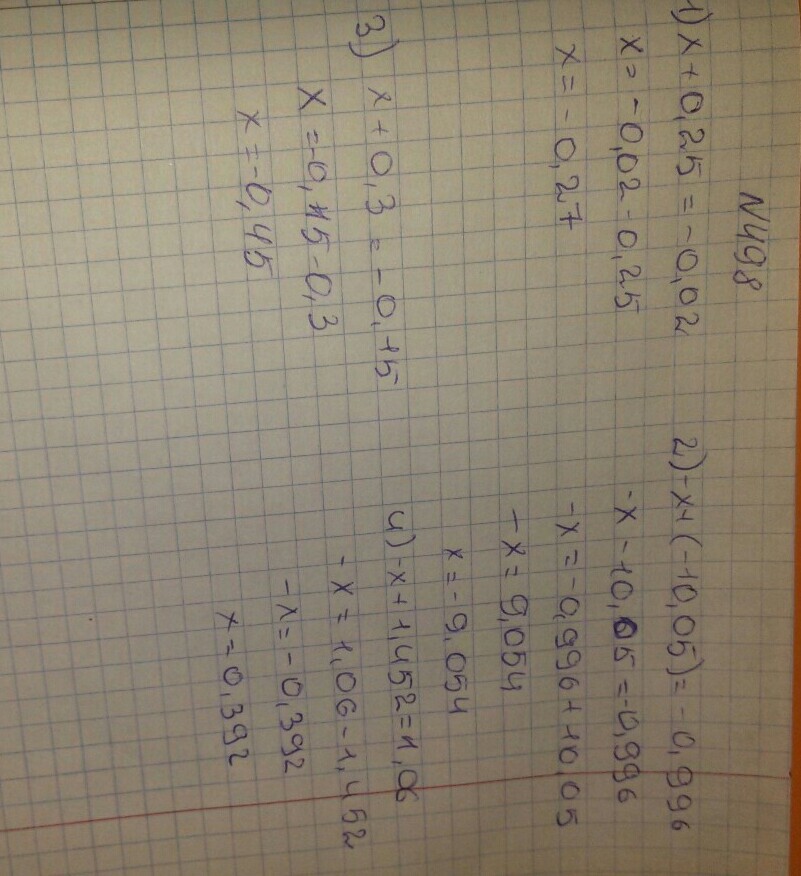 N498
1) x + 0,25 = - 0,02
x = - 0,02 - 0,25
x = - 0,27
2) -x + (-10,05) = - 0,996
-x - 10,05 = -0,996
-x = -0,996 + 10,05
- x = 9,054
x = - 9,054
3) x + 0,3 = - 0,15
x = -0,15 - 0,3
x = -0,45
4) -x + 1,452 = 1,06
- x = 1,06 - 1,452
- x = - 0,392
x = 0,392